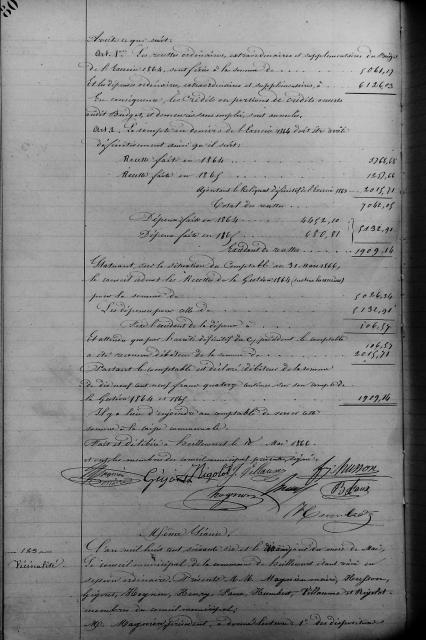 80
Arrête ce qui suit:
Art. 1er Les recettes ordinaires, extraordinaires et supplémentaires du Budget
de l'Exercice 1864, sont fixées à la somme de 5061,17
Et les dépenses ordinaires, extraordinaires et supplémentaires, à 6126,03
En conséquence, les Crédits ou portions de crédits ouverts
audit Budget, et demeurés sans emploi, sont annulés.
Art. 2 Le compte en deniers de l'Exercice 1864 doit être arrêté
définitivement ainsi qu'il suit:
Recette faite en 1864
Recette faite en 1865 1257,66
Ajoutant le Reliquat définitif de l'Exercice 1863 2015,71
Total des recettes 7042,05
Dépense faite en 1864 4452,10
Dépense faite en 1865 680,81
5132,91
Excédent de recettes 1909,14
Statuant, sur la situation du Comptable au 31 Mars 1866,
le conseil admet les Recettes de la Gestion 1864
pour la somme de 5026,34
Les dépenses pour celle de 5132,91
Fixe l'excédent de la dépense à 106,57
Et attendu que par l'arrêté définitif du Cy précédent le comptable 106,57
a été reconnu débiteur de la somme de 2015,71
Partant le comptable est déclaré débiteur de la somme
de dix neuf cent neuf francs quatorze centimes sur son compte de
la Gestion 1864 et 1865 1909,14
Il y a lieu d'enjoindre au comptable de verser cette
somme à la caisse communale.
Fait et délibéré à le Mai 1866
et ont les membres du conseil municipal présents signé.
Gigout Nigolot Villaume Husson
Même Séance
183
Vicinalité.
L'an mil huit cent soixante six et le du mois de Mai,
le conseil municipal de la commune de s'est réuni en
session ordinaire. Présents M.M. Magnien maire, Husson,
Gigout, Humbert, Villaume et Nigolot
membres du conseil municipal;
M. Magnien président, a donné lecture 1° des dispositions